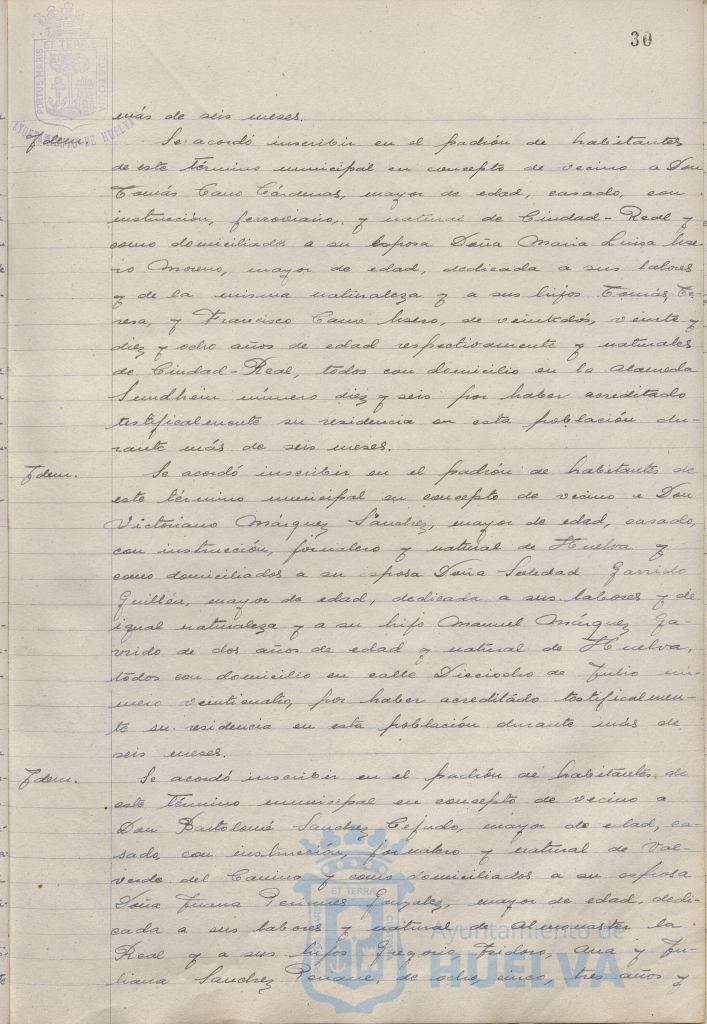 30
PORTUS MARIS ET TERRÆ CUSTODIA
AYUNTAMIENTO DE HUELVA
más de seis meses.
Idem. Se acordó inscribir en el padrón de habitantes
de este término municipal en concepto de vecino a Don
Tomás Cano Cárdenas, mayor de edad, casado, con
instrucción, ferroviario, y natural de Ciudad-Real y
como domiciliados a su esposa Doña Maria Luisa
Moreno, mayor de edad, dedicada a sus labores
y de la misma naturaleza y a sus hijos Tomás, Te-
resa, y Francisco Cano, de veintidós, veinte y
diez y ocho años de edad respectivamente y naturales
de Ciudad-Real, todos con domicilio en la Alameda
Sundheim número diez y seis por haber acreditado
testificalmente su residencia en esta población du-
rante más de seis meses.
Idem. Se acordó inscribir en el padrón de habitantes de
este término municipal en concepto de vecino a Don
Victoriano Márquez Sánchez, mayor de edad, casado,
con instrucción, jornalero y natural de Huelva y
como domiciliados a su esposa Doña Soledad Garrido
Guillén, mayor de edad, dedicada a sus labores y de
igual naturaleza y a su hijo Manuel Márquez Ga-
rrido de dos años de edad y natural de Huelva,
todos con domicilio en calle Dieciocho de Julio nú-
mero veinticuatro, por haber acreditado testificalmen-
te su residencia en esta población durante más de
seis meses.
Idem. Se acordó inscribir en el padrón de habitantes de
este término municipal en concepto de vecino a
Don Bartolomé Sanchez Cejudo, mayor de edad, ca-
sado, con instrucción, jornalero y natural de Val-
verde del Camino y como domiciliados a su esposa
Doña Juana Gonzalez, mayor de edad, dedi-
cada a sus labores y natural de Almonaster la
Real y a sus hijos Gregorio, Isidoro, Ana y Ju-
liana Sanchez, de ocho, cinco, tres años y
Ayuntamiento de
HUELVA